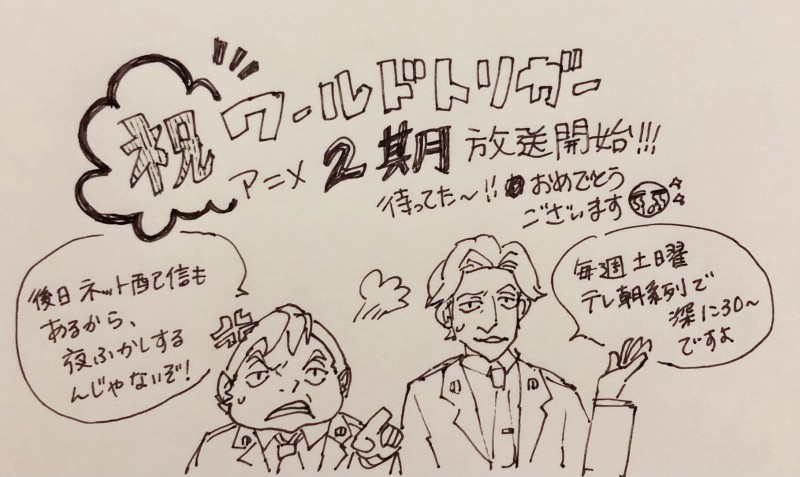 祝
ワールドトリガー
アニメ 2期 放送開始!!!
待ってた〜!! おめでとう
ございます
後日ネット配信も
あるから、
夜ふかしする
んじゃないぞ!
毎週土曜
テレ朝系列で
深1:30〜
ですよ